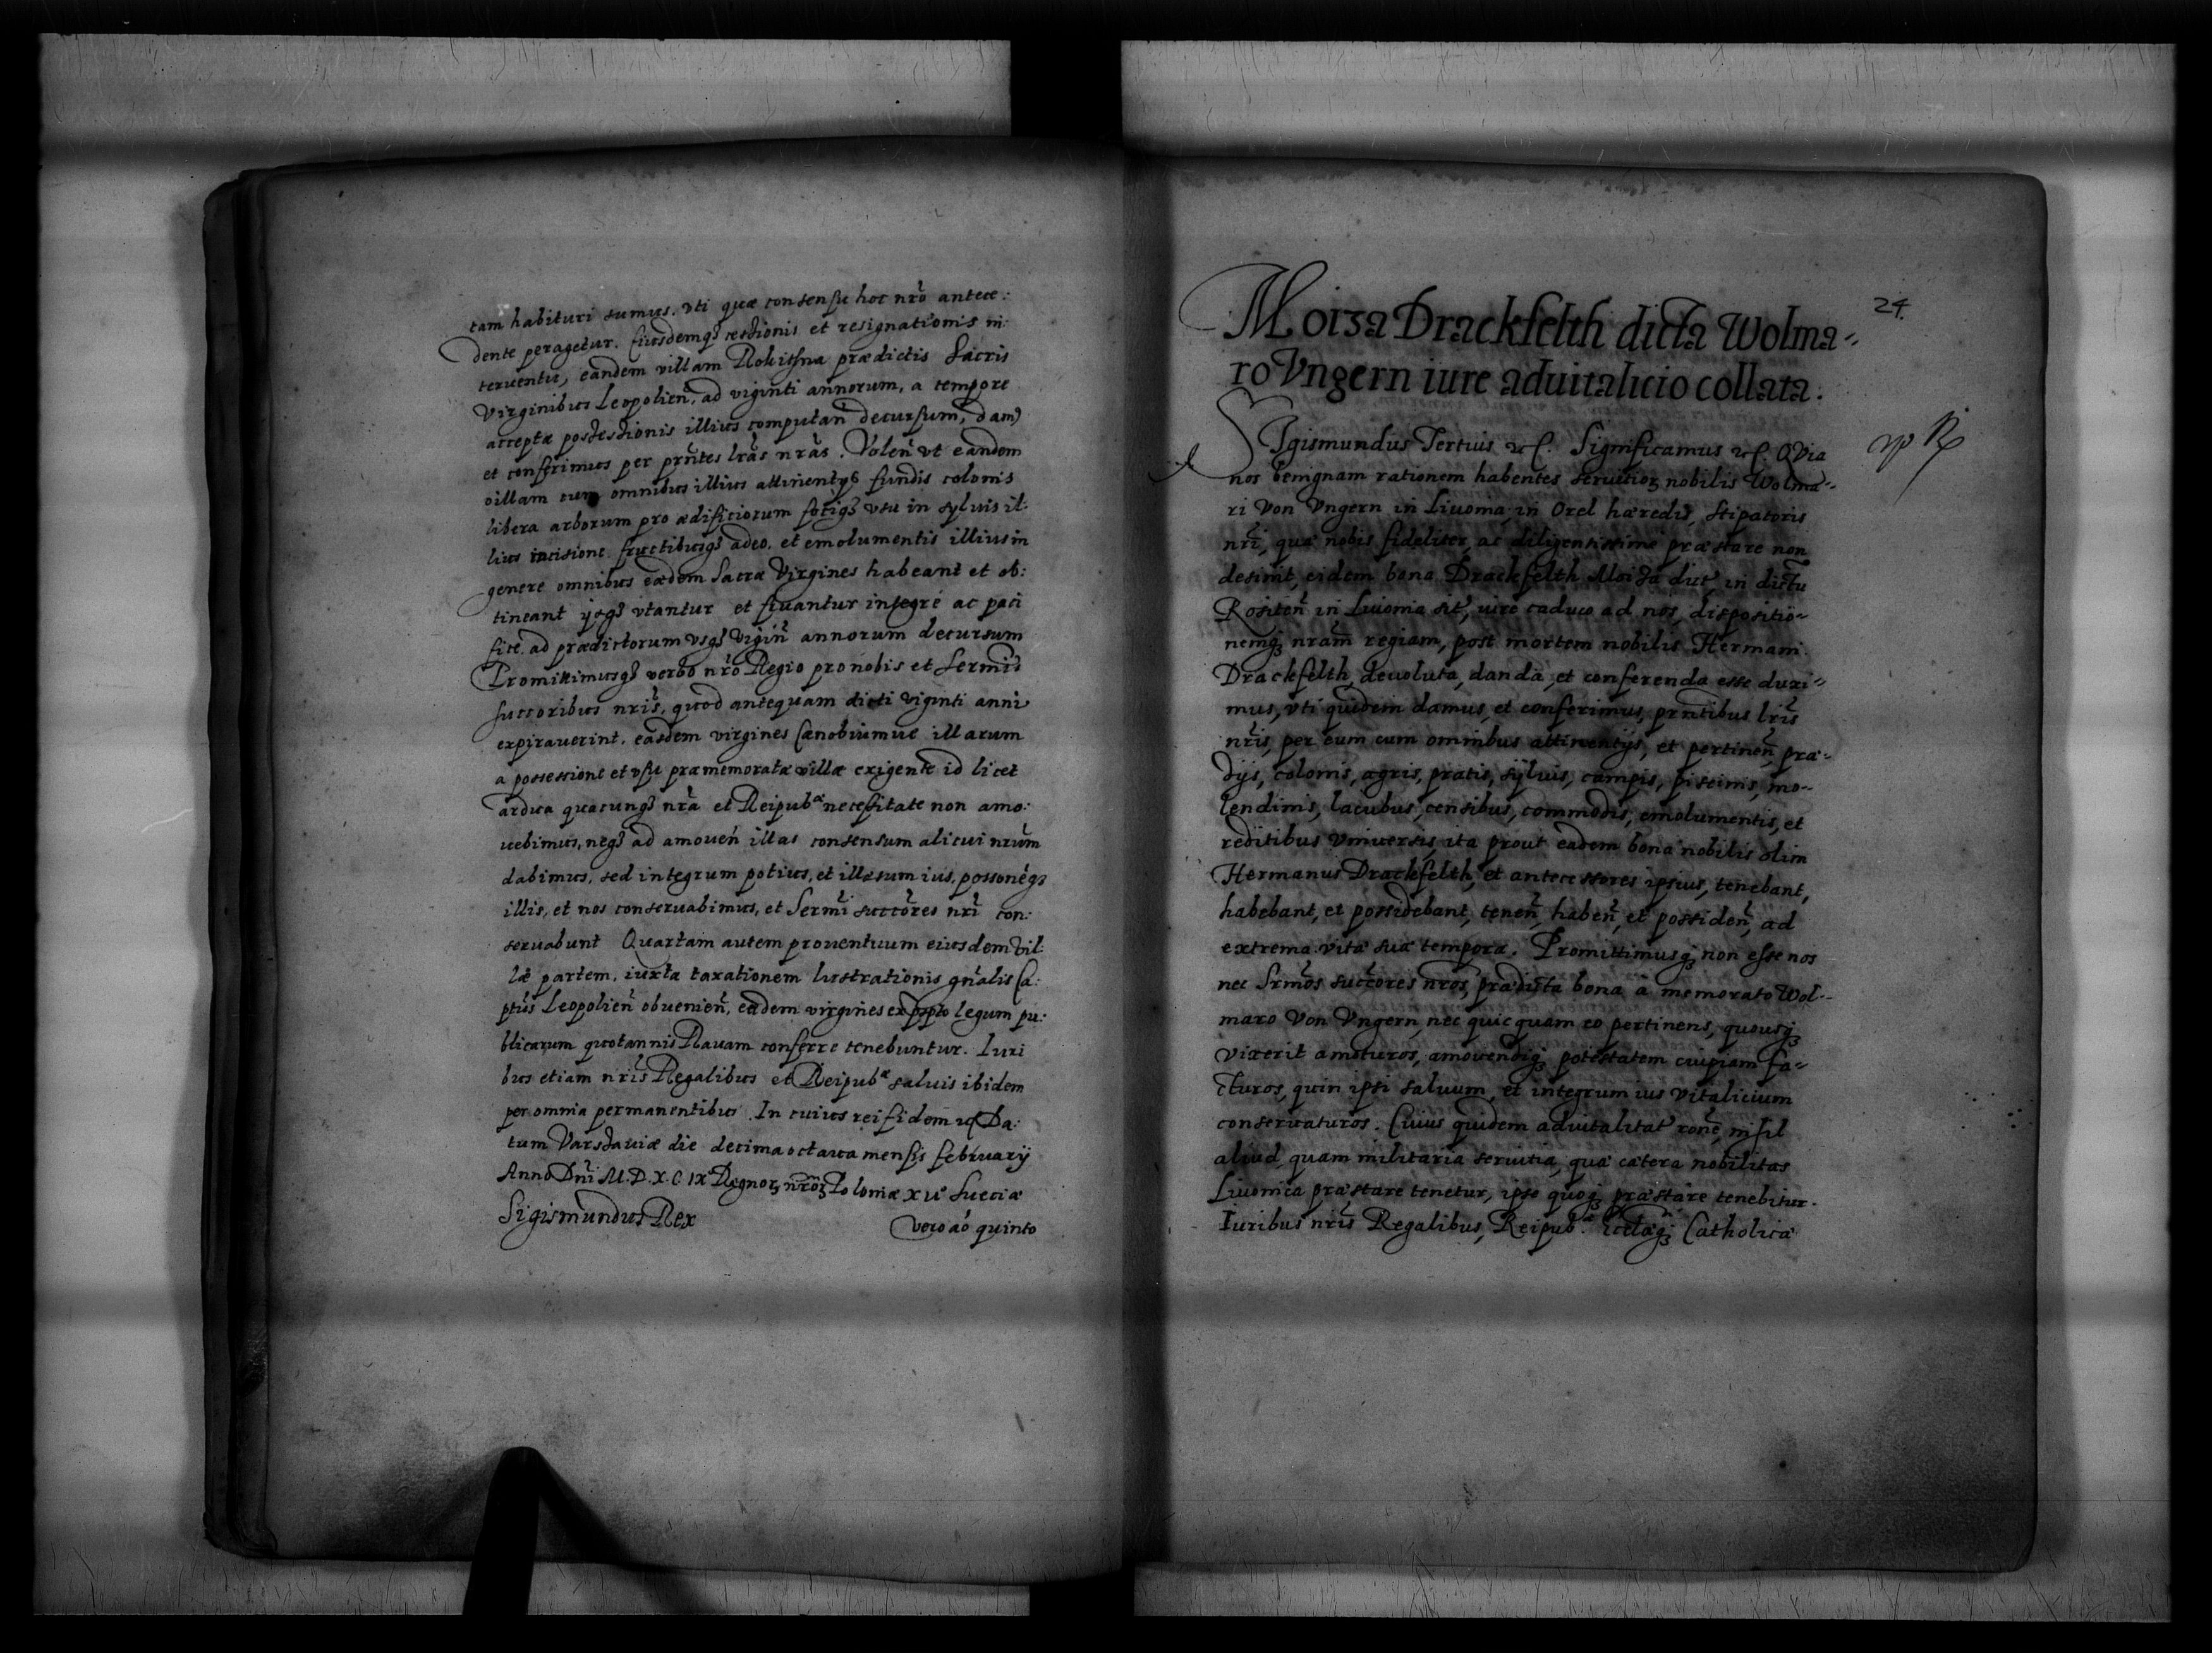 tam habituri sumus, vti quæ consensu hoc nrō antece:
dente peragetur. Eiusdemqȝ cessionis et resignationis in:
teruentu, eandem villam Rokithna prædictis Sacris
Virginibus Leopolien̄, ad viginti annorum, a tempore
acceptæ possessionis illius computan̄ decursum, dam9
et conferimus per pn̄tes lrās nrās. Volen̄ vt eandem
villam cum omnibus illius attinentys fundis colonis
libera arborum pro ædificiorum fociqȝ vsu in syluis il:
lius incisione fructibusqȝ adeo, et emolumentis illius in
genere omnibus eædem Sacræ Virgines habeant et ob:
tineant ijsqȝ vtantur et fruantur integrè ac paci
fice ad prædictorum vsqȝ vigin̄ annorum decursum
Promittimusqȝ verbo nrō Regio pro nobis et Sermīs
succoribus nrīs, quod antequam dicti viginti anni
expirauerint, easdem virgines Cænobiumue illarum
a possessione et vsu præmemoratæ villæ exigente id licet
ardua quacunqȝ nrā et Reipubæ necessitate non amo:
uebimus, neqȝ ad amouen̄ illas consensum alicui nrūm
dabimus, sed integrum potius, et illæsum ius, possonēqȝ
illis, et nos conseruabimus, et Sermī succōres nrī con:
seruabunt Quartam autem prouentuum eiusdem Vil:
læ partem, iuxta taxationem lustrationis gn̄alis Ca:
ptūs Leopolien̄ obuenien̄, eædem virgines ex pscpto legum pu:
blicarum quotannis Rauam conferre tenebuntur. Iuri
bus etiam nrīs Regalibus et Reipubæ saluis ibidem
per omnia permanentibus. In cuius rei fidem ꝛc Da:
tum Varssauiæ die decima octaua mensis february
Anno Dn̄i M.D.X.C.IX Regnoꝝ nrōꝝ Poloniæ xiiº Sueciæ
Sigismundus Rex vero aō quinto
24.
Moiza Drackfelth dicta Wolma-
ro Vngern iure aduitalicio collata.
SIgismundus Tertuis ꝛc. Significamus ꝛc. QVia
nos benignam rationem habentes seruitioꝝ nobilis Wolma-
ri Von Vngern in Liuonia, in Orel hæredis, Stipatoris
nrī, quæ nobis fideliter, ac diligentissimè præstare non
desinit, eidem bona Drackfelth Moiza dict, in dictu
Rositen̄ in Liuonia sit, iure caduco ad nos, dispositio-
nemqȝ nrām regiam, post mortem nobilis Hermani
Drackfelth, deuoluta, danda, et conferenda esse duxi-
mus, vti quidem damus, et conferimus, prn̄tibus lrīs
nrīs, per eum cum omnibus attinentijs, et pertinen̄, præ-
dijs, colonis, agris, pratis, syluis, campis, piscinis, mo-
lendinis, lacubus, censibus, commodis, emolumentis, et
reditibus vniuersis, ita prout eadem bona nobilis olim
Hermanus Drackfelth, et antecessores ipsius, tenebant,
habebant, et possidebant, tenen̄, haben̄, et possiden̄, ad
extrema vitæ suæ tempora. Promittimusqȝ non esse nos
nec Srmōs succōres nrōs, prædicta bona à memorato Wol-
maro Von Vngern, nec quicquam eo pertinens, quousqȝ
vixerit amoturos, amouendiqȝ potestatem cuipiam fa-
cturos, quin ipsi saluum, et integrum ius vitalicium
conseruaturos. Cuius quidem aduitalitat ronē, nihil
aliud, quam militaria seruitia, quæ cætera nobilitas
Liuonica præstare tenetur, ipse quoqȝ præstare tenebitur.
Iuribus nrīs Regalibus, Reipubæ. ecclæqȝ Catholicæ